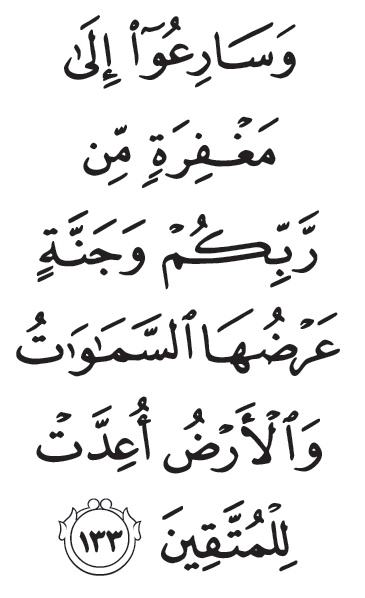 وَسَارِعُوٓا۟ إِلَىٰ
مَغْفِرَةٍ مِّن
رَّبِّكُمْ وَجَنَّةٍ
عَرْضُهَا ٱلسَّمَـٰوَٰتُ
وَٱلْأَرْضُ أُعِدَّتْ
لِلْمُتَّقِينَ ١٣٣